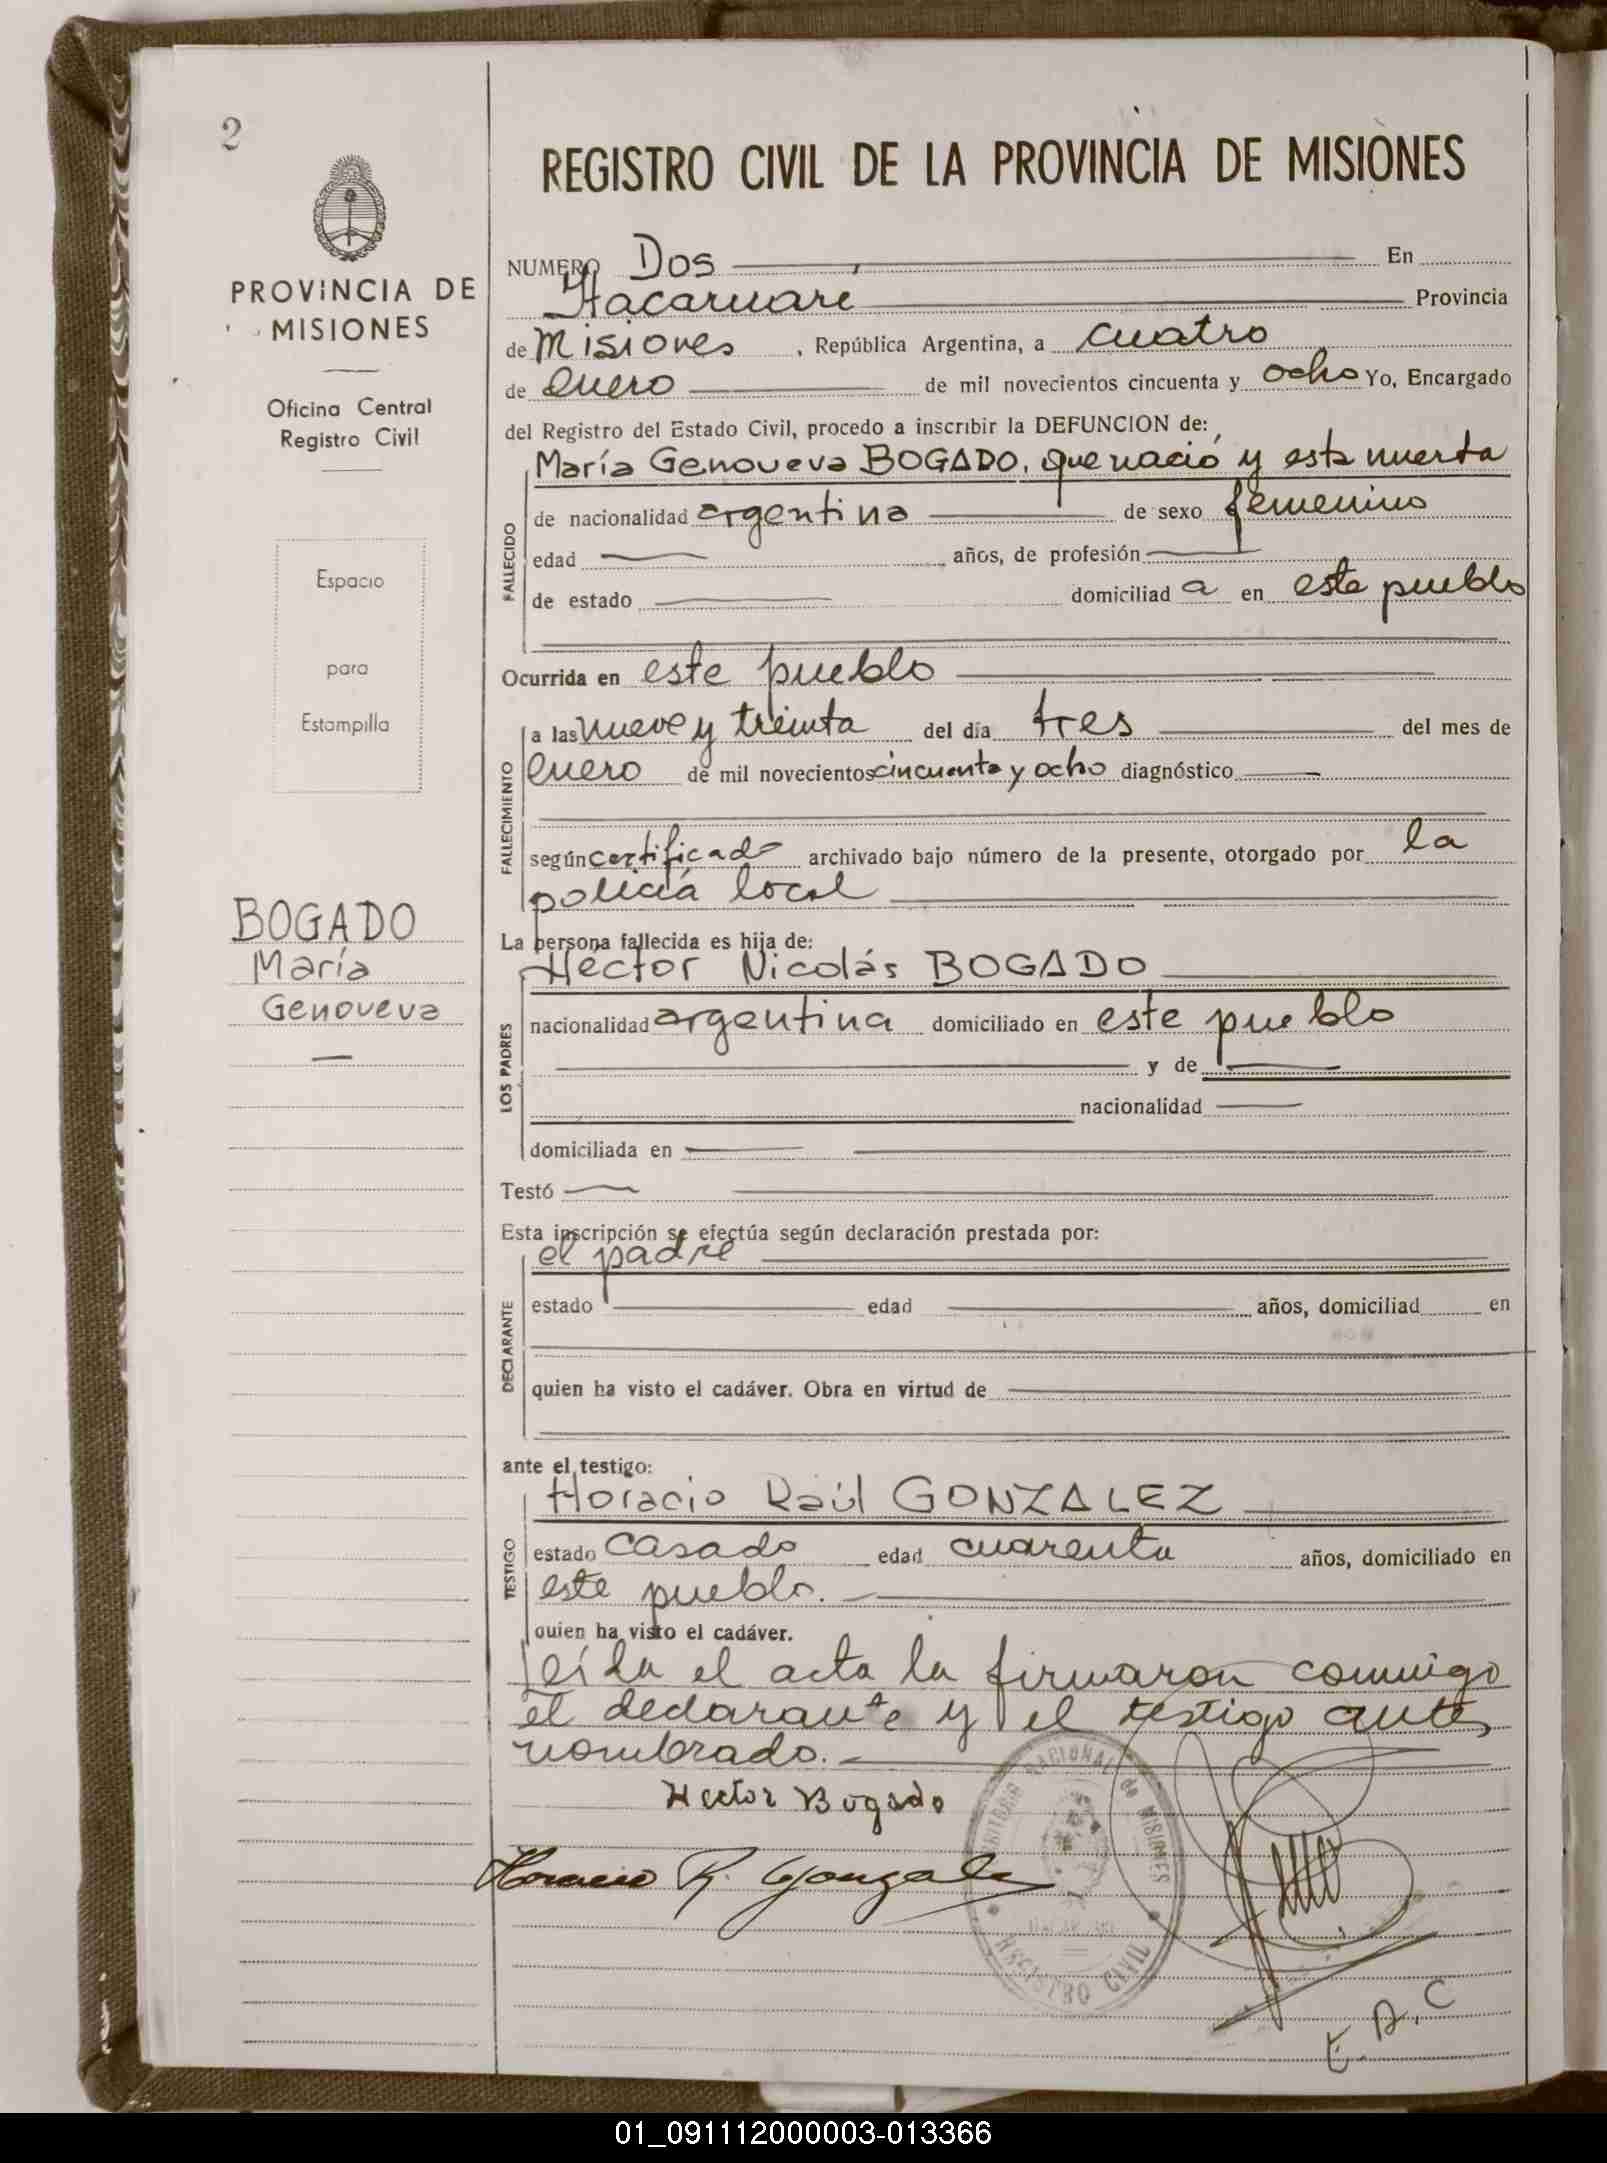 2
PROVINCIA DE
MISIONES
Oficina Central
Registro Civil
Espacio
para
Estampilla
BOGADO
María
Genoveva
REGISTRO CIVIL DE LA PROVINCIA DE MISIONES
NUMERO Dos En
Itacaruaré Provincia
de Misiones , República Argentina, a cuatro
de enero de mil novecientos cincuenta y ocho Yo, Encargado
del Registro del Estado Civil, procedo a inscribir la DEFUNCION de:
María Genoveva BOGADO, que nació y esta muerta
FALLECIDO
de nacionalidad argentina de sexo femenino
edad años, de profesión
de estado domiciliad a en este pueblo
Ocurrida en este pueblo
FALLECIMIENTO
a las nueve y treinta del día tres del mes de
enero de mil novecientos cincuenta y ocho diagnóstico
según certificado archivado bajo número de la presente, otorgado por la
policía local
La persona fallecida es hija de:
LOS PADRES
Hector Nicolás BOGADO
nacionalidad argentina domiciliado en este pueblo
y de
nacionalidad
domiciliada en
Testó
Esta inscripción se efectúa según declaración prestada por:
DECLARANTE
el padre
estado edad años, domiciliad en
quien ha visto el cadáver. Obra en virtud de
ante el testigo:
TESTIGO
Horacio Raúl GONZALEZ
estado casado edad cuarenta años, domiciliado en
este pueblo.
quien ha visto el cadáver.
Leída el acta la firmaron conmigo
el declarante y el testigo antes
nombrado.
Hector Bogado
Horacio R. Gonzalez
NACIONAL de MISIONES
REGISTRO CIVIL
E. A. C
01_091112000003-013366